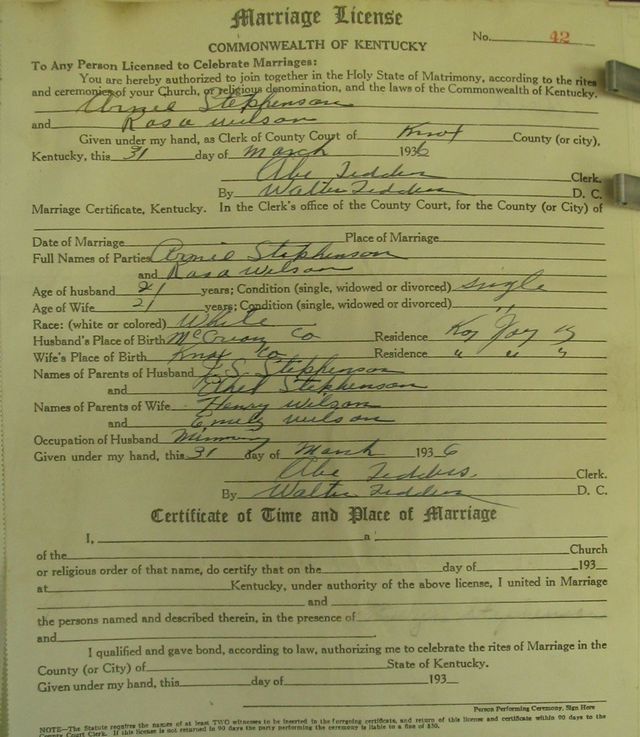 Marriage License
COMMONWEALTH OF KENTUCKY
No. 42
To Any Person Licensed to Celebrate Marriages:
You are hereby authorized to join together in the Holy State of Matrimony, according to the rites
and ceremonies of your Church, or religious denomination, and the laws of the Commonwealth of Kentucky.
Arnie Stephenson
and Rosa Wilson
Given under my hand, as Clerk of County Court of Knox County (or city),
Kentucky, this 31 day of March 1936
Abe Tedders Clerk.
By Walter Tedders D. C.
Marriage Certificate, Kentucky. In the Clerk's office of the County Court, for the County (or City) of
Date of Marriage Place of Marriage
Full Names of Parties Arnie Stephenson
and Rosa Wilson
Age of husband 21 years; Condition (single, widowed or divorced) single
Age of Wife 21 years; Condition (single, widowed or divorced) "
Race: (white or colored) White
Husband's Place of Birth McCreary Co Residence Kay Jay Ky
Wife's Place of Birth Knox Co Residence " " "
Names of Parents of Husband S. Stephenson
and Ethel Stephenson
Names of Parents of Wife Henry Wilson
and Emily Wilson
Occupation of Husband Mining
Given under my hand, this 31 day of March 1936
Abe Tedders. Clerk.
By Walter Tedders D. C.
Certificate of Time and Place of Marriage
I, a
of the Church
or religious order of that name, do certify that on the day of 193
at Kentucky, under authority of the above license, I united in Marriage
and
the persons named and described therein, in the presence of
and .
I qualified and gave bond, according to law, authorizing me to celebrate the rites of Marriage in the
County (or City) of State of Kentucky.
Given under my hand, this day of 193
Person Performing Ceremony, Sign Here
NOTE—The Statute requires the names of at least TWO witnesses to be inserted in the foregoing certificate, and return of this license and certificate within 90 days to the
County Court Clerk. If this license is not returned in 90 days the party performing the ceremony is liable to a fine of $50.